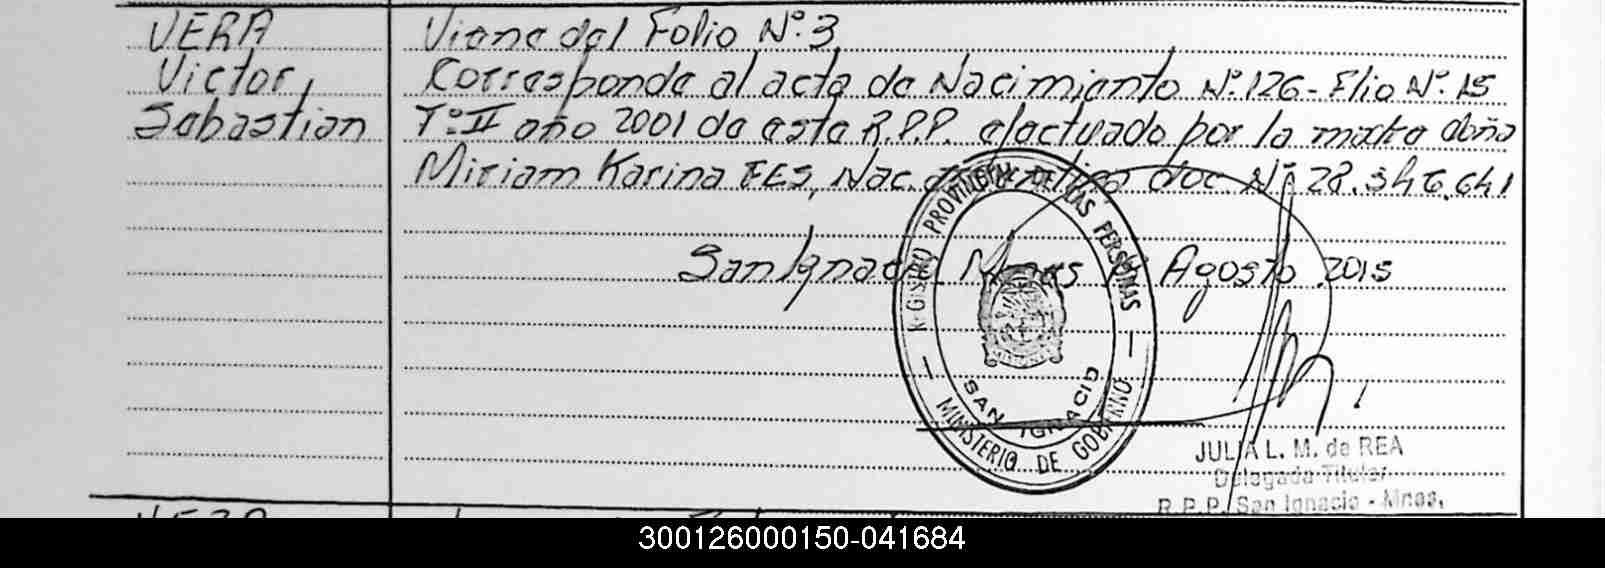 VERA Viene del Folio Nº 3
Victor, Corresponde al acta de Nacimiento Nº 126 - Flio Nº 15
Sebastian Tº II año 2001 de este R.P.P. efectuado por la madre doña
Miriam Karina FES, Nac. argentina doc. Nº 28.346.641
San Ignacio, Mnes, Agosto 2015
REGISTRO PROVINCIAL DE LAS PERSONAS
SAN IGNACIO
MINISTERIO DE GOBIERNO
JULIA L. M. de REA
Delegada Titular
R.P.P. San Ignacio - Mnes.
VERA
300126000150-041684